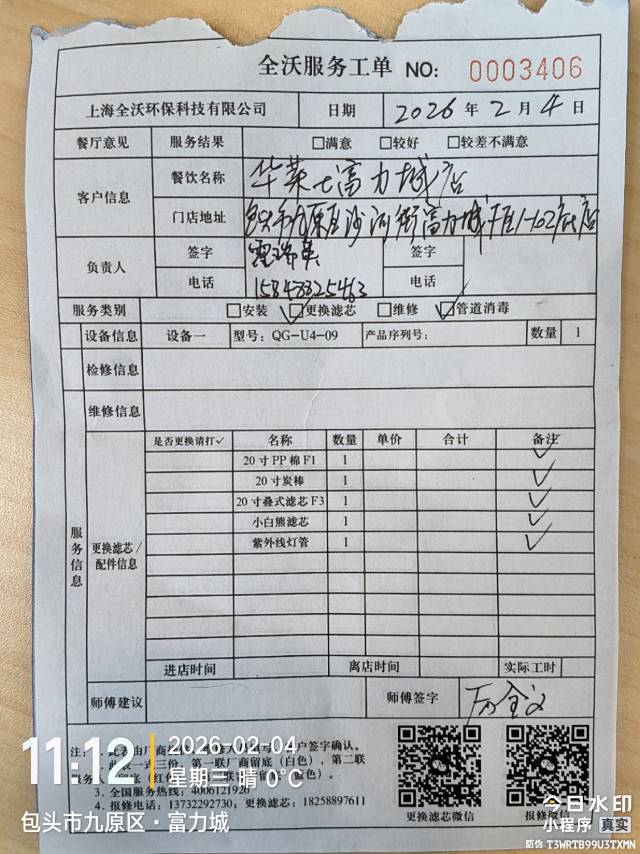 全沃服务工单 NO: 0003406
上海全沃环保科技有限公司 日期 2026 年 2 月 4 日
餐厅意见 服务结果 □满意 □较好 □较差不满意
客户信息 餐饮名称 华莱士富力城店
门店地址 包头市九原区沙河街富力城 1-102底店
负责人 签字 签字
电话 15848325463 电话
服务类别 □安装 ☑更换滤芯 □维修 ☑管道消毒
设备信息 设备一 型号: QG-U4-09 产品序列号: 数量 1
检修信息
维修信息
服务信息
更换滤芯/配件信息
是否更换请打✓ 名称 数量 单价 合计 备注
20寸PP棉F1 1 ✓
20寸炭棒 1 ✓
20寸叠式滤芯F3 1 ✓
小白熊滤芯 1 ✓
紫外线灯管 1 ✓
进店时间 离店时间 实际工时
师傅建议 师傅签字
注: 1. 此 由厂商 户签字确认。
2. 此表一式三份。第一联厂商留底(白色),第二联
服务 留底(红 联 留底( 色)。
3. 全国服务热线: 4006121926
4. 报修电话: 13732292730; 更换滤芯: 18258897611
更换滤芯微信 报修微信
11:12 2026-02-04
星期三 晴 0℃
包头市九原区·富力城
今日水印
小程序 真实
防伪 T3WRTB99U3TXMN